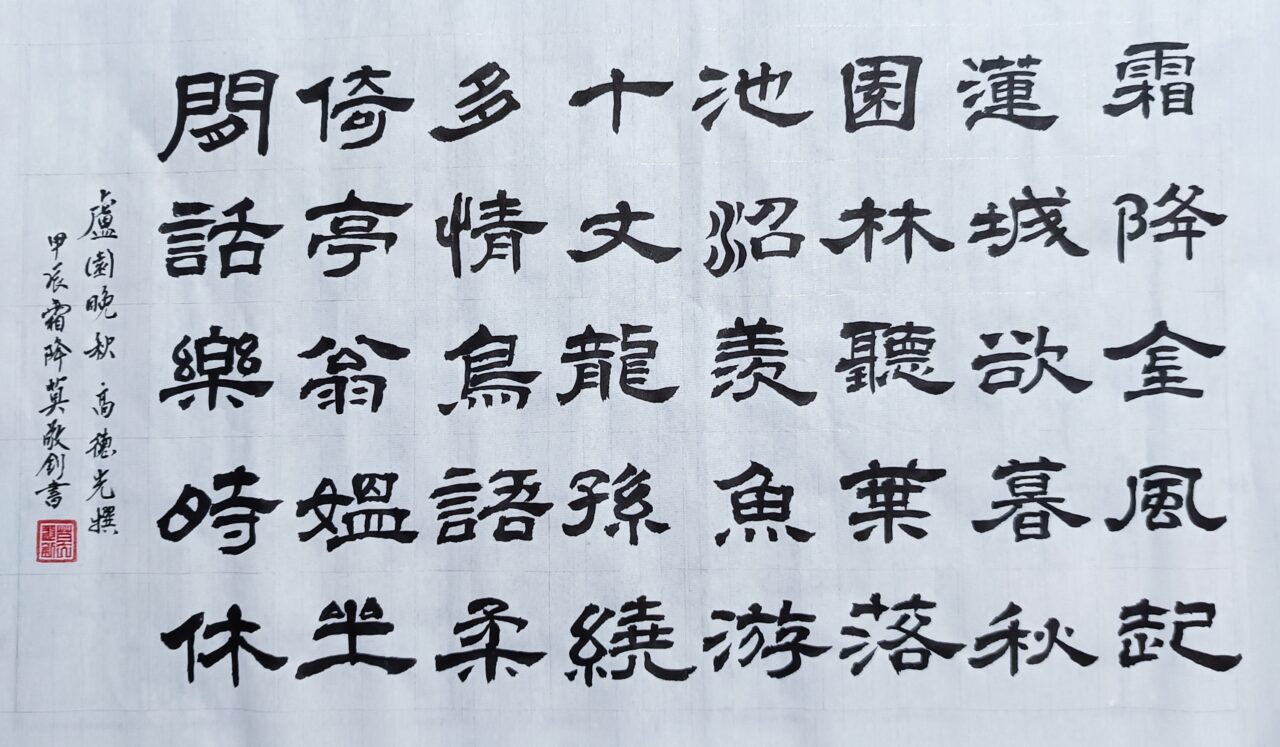 霜降金風起
蓮城欲暮秋
園林聽葉落
池沼羨魚游
十丈龍孫繞
多情鳥語柔
倚亭翁媼坐
閒話樂時休
盧園晚秋 高德光撰
甲辰霜降莫敬釗書